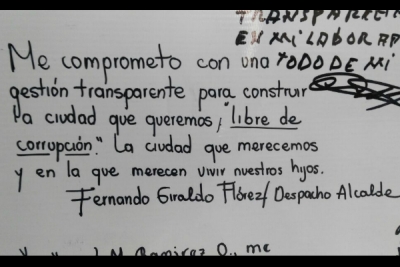 TRANSPARE
EN MI LABOR
TODO DE MI
Me comprometo con una
gestión transparente para construir
la ciudad que queremos, "libre de
corrupción." La ciudad que merecemos
y en la que merecen vivir nuestros hijos.
Fernando Giraldo Flórez/ Despacho Alcalde
J.M. Ramirez O., me